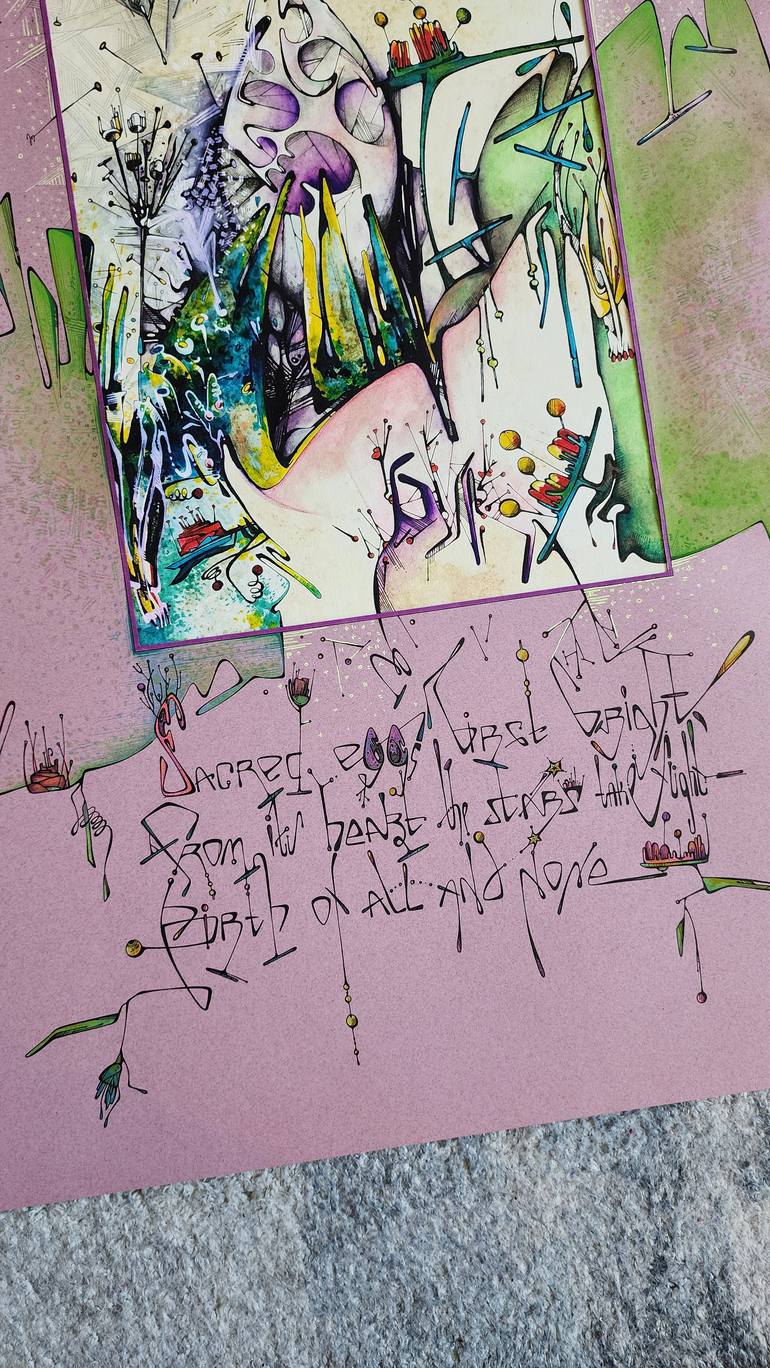 Sacred egg, first bright,
From its heart the stars take flight—
Birth of all and none